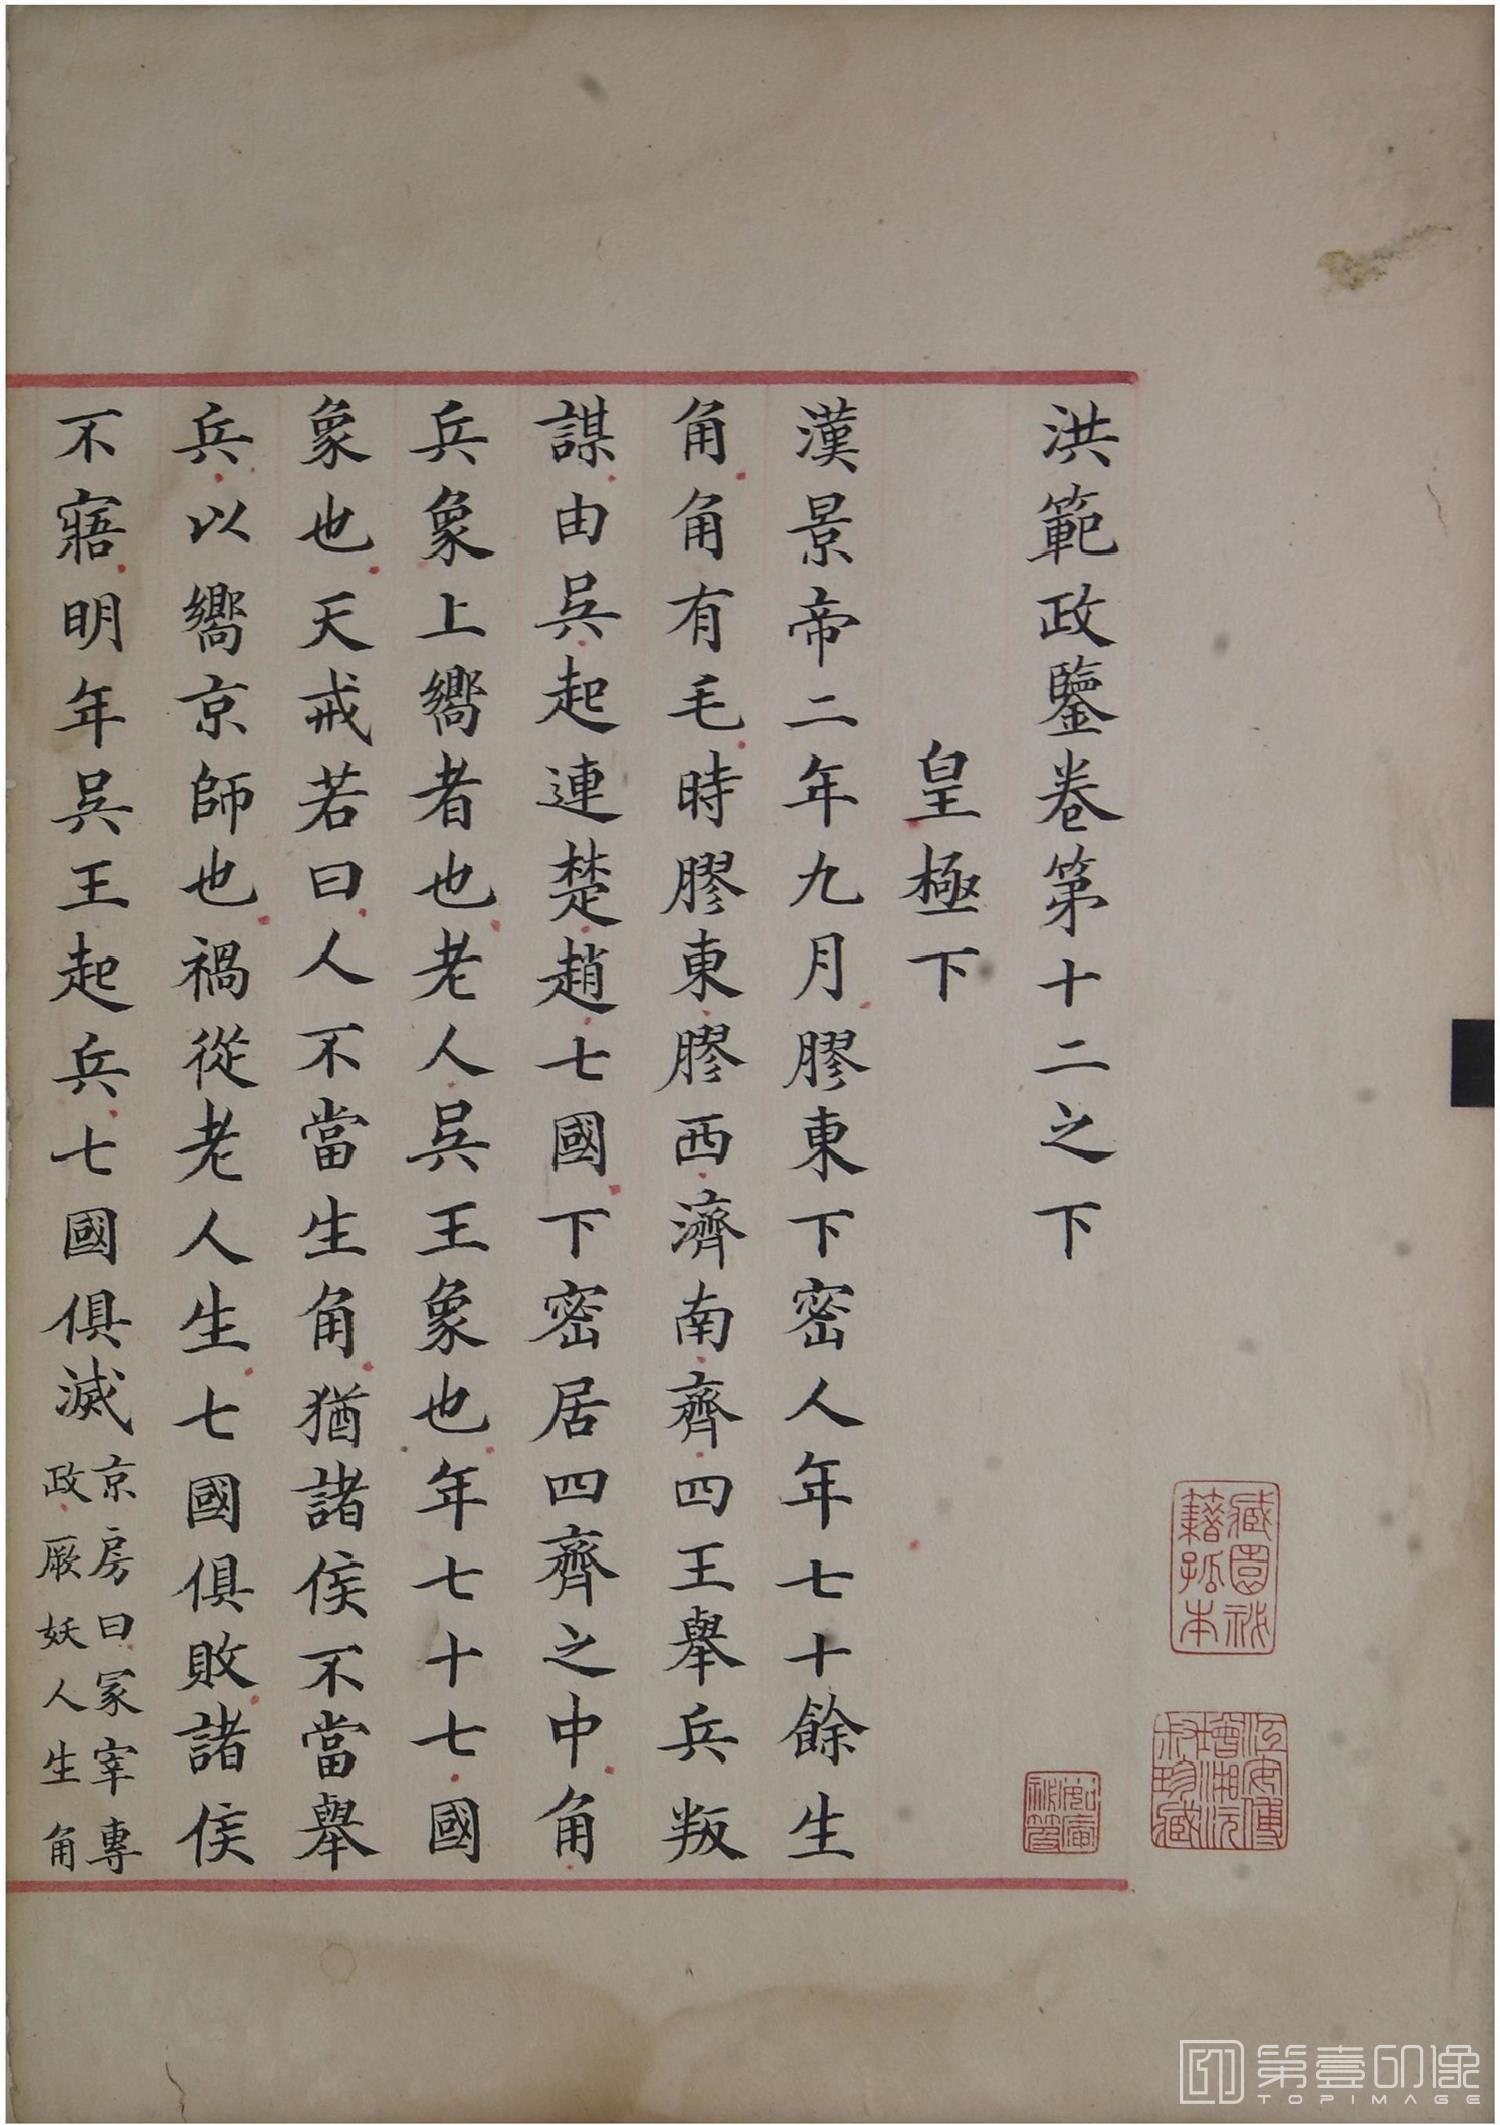 洪範政鑒卷第十二之下
皇極下
漢景帝二年九月膠東下密人年七十餘生
角角有毛時膠東膠西濟南齊四王舉兵叛
謀由吳起連楚趙七國下密居四齊之中角
兵象上嚮者也老人吳王象也年七十七國
象也天戒若曰人不當生角猶諸侯不當舉
兵以嚮京師也禍從老人生七國俱敗諸侯
不寤明年吳王起兵七國俱滅
京房曰冢宰專
政厥妖人生角
藏園祕
籍孤本
江安傅
增湘沅
叔珍藏
第壹印像
TOPIMAGE